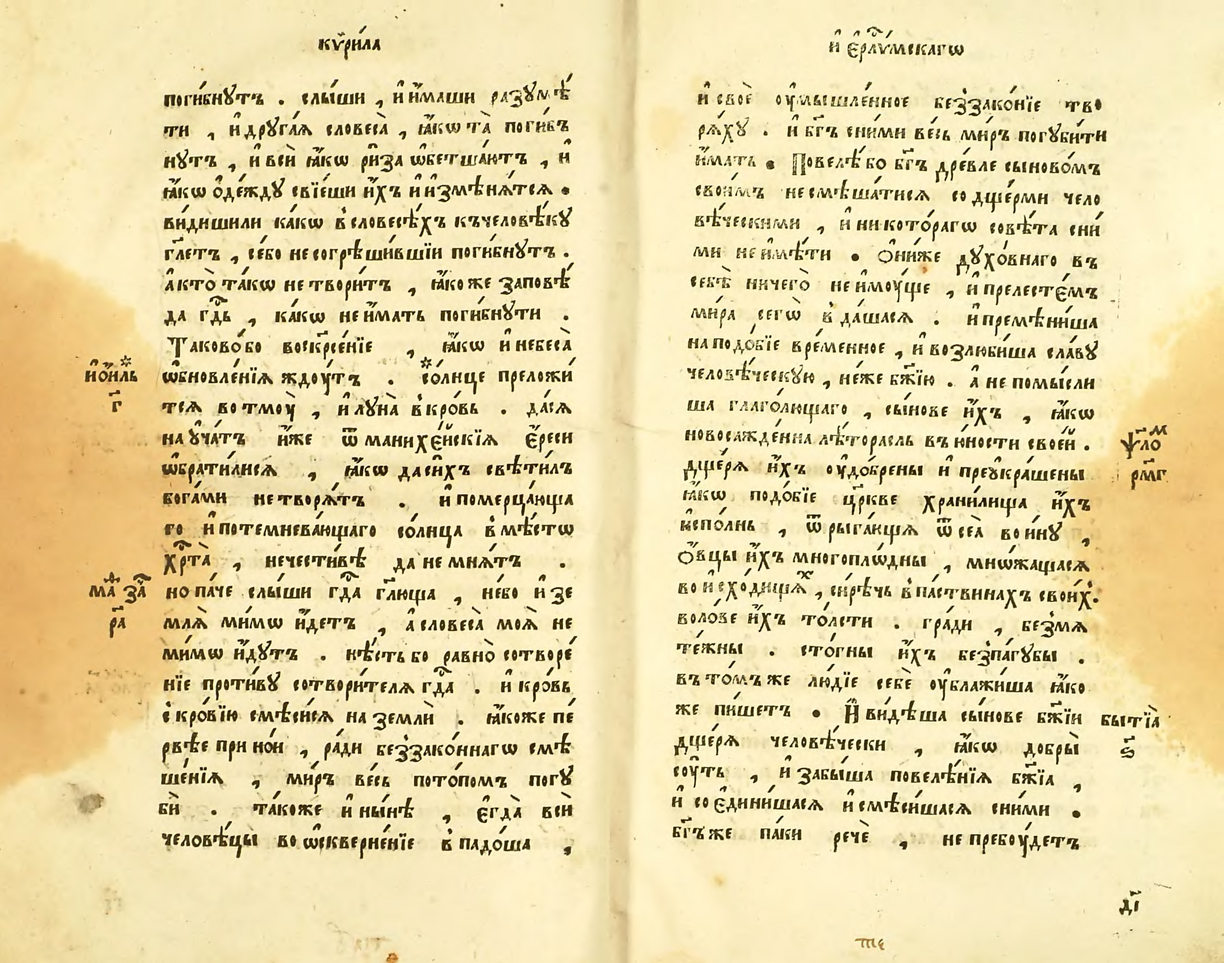 кѷри́ла
поги́бнꙋтъ . слы́ши , и҆и҆́маши разꙋмѣ́
ти , и҆дрꙋга́ѧ словеса̀ , ꙗ҆́кѡ та̀ поги́б
нꙋтъ , и҆всѝ ꙗ҆́кѡ ри́за ѡ҆бетша́ютъ , и҆
ꙗ҆́кѡ ѻ҆де́ждꙋ свїе́ши и҆̀хъ и҆измѣнѧ́тсѧ .
ви́дишили ка́кѡ всловесѣ́хъ къчеловѣ́кꙋ
гл҃етъ , се́бо несогрѣши́вшїи поги́бнꙋтъ .
а҆кто̀ та́кѡ нетвори́тъ , ꙗ҆́коже заповѣ́
да гд҇ь , ка́кѡ неи҆́мать поги́бнꙋти .
Тако́во́бо воскрс҇е́нїе , ꙗ҆́кѡ и҆небеса̀
и҆ѻи́ль
г҃
ѡ҆бновле́нїѧ ждꙋ́тъ . со́лнце преложи́
тсѧ вотмꙋ̀ , и҆лꙋна̀ вкро́вь . да́сѧ
наꙋча́тъ и҆́же ѿ манихе́йскїѧ є҆́реси
ѡ҆брати́лисѧ , ꙗ҆́кѡ даси́хъ свѣти́лъ
бога́ми нетворѧ́тъ . и҆померца́юща
го и҆потемнева́ющаго со́лнца вмѣ́стѡ
хрт҇а̀ , нечести́вѣ данемнѧ́тъ .
маѳ за҇
рл҃а
нопа́че слы́ши гд҇а гл҃юща , не́бо и҆зе
млѧ̀ ми́мѡ и҆́детъ , а҆словеса̀ моѧ̀ не
ми́мѡ и҆́дꙋтъ . нѣ́стьбо равно̀ сотворе́
нїе проти́вꙋ сотвори́телѧ гд҇а . и҆кро́вь
скро́вїю смѣси́сѧ наземлѝ . ꙗ҆́коже пе́
рвѣе принѻ́и , ра́ди беззако́ннагѡ смѣ
ше́нїѧ , ми́ръ ве́сь пото́помъ погꙋ
бѝ . та́коже и҆ны́нѣ , є҆гда̀ всѝ
человѣ́цы воѡскверне́нїе впадо́ша ,
и҆ є҆рлⷭ҇и́мскагѡ
и҆ своѐ ᲂу҆мы́шленное беззако́нїе тво
рѧ́хꙋ . и҆бг҃ъ сни́ми ве́сь ми́ръ погꙋби́ти
и҆́мать . Повелѣ́бо бг҃ъ дре́вле сыново́мъ
свои́мъ несмѣша́тисѧ содще́рми чело
вѣ́ческими , и҆никото́рагѡ совѣ́та сни́
ми неи҆мѣ́ти . Ѻ҆ни́же дꙋхо́внаго въ
себѣ̀ ничего̀ неи҆мꙋ́ще , и҆пре́лестемъ
ми́ра сегѡ̀ вда́шасѧ . и҆премѣни́ша
наподо́бїе вре́менное , и҆возлюби́ша сла́вꙋ
человѣ́ческꙋю , не́же бж҃їю . а҆ непомы́сли
ша глаго́лющаго , сы́нове и҆̀хъ , ꙗ҆́кѡ
новосажде́нна лѣ́торасль въю́ности свое́й .
ѱало́м
рм҃г
дще́рѧ и҆̀хъ ᲂу҆до́брены и҆ преꙋкра́шены
ꙗ҆́кѡ подо́бїе цр҃кве храни́лища и҆̀хъ
и҆спо́лнь , ѿрыга́ющѧ ѿсеѧ̀ вои́нꙋ ,
Ѻ҆́вцы и҆̀хъ многоплѡ́дны , мнѡ́жащасѧ
воисхо́дищѧх , си́рѣчь впа́ствинахъ свои́х .
воло́ве и҆̀хъ то́лсти . гра́ди , безмѧ
те́жны . сто́гны и҆̀хъ безпа́гꙋбы .
вто́мъже лю́дїе себѐ ᲂу҆блажи́ша ꙗ҆́ко
же пи́шетъ . И҆ ви́дѣша сы́нове бж҃їи
бытїа̀
ѕ҃
дще́рѧ человѣ́чески , ꙗ҆́кѡ добры̀
сꙋ́ть , и҆забы́ша повелѣ́нїѧ бж҃їа ,
и҆ соедини́шасѧ и҆смѣси́шасѧ сни́ми .
бг҃ъже па́ки речѐ , непребꙋ́детъ
д҃і